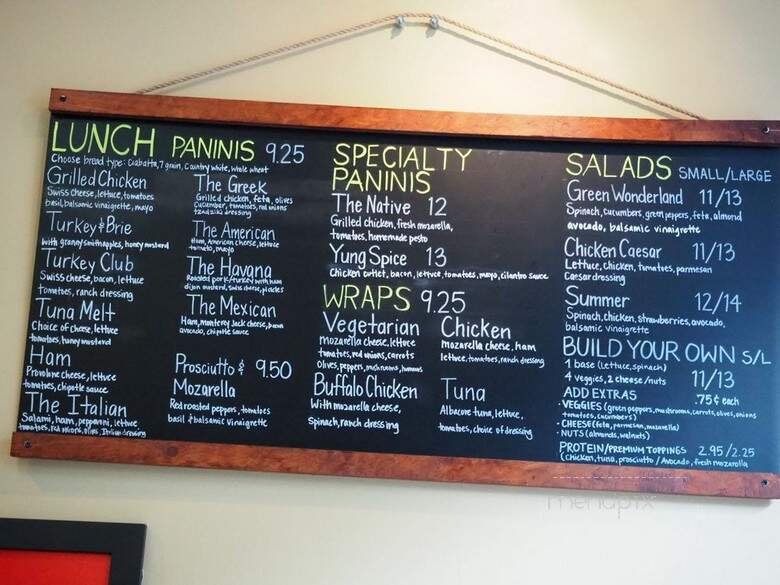 LUNCH PANINIS 9.25
Choose bread type: Ciabatta, 7 grain, Country white, whole wheat
Grilled Chicken
Swiss cheese, lettuce, tomatoes
basil, balsamic vinaigrette, mayo
Turkey & Brie
with granny smith apples, honey mustard
Turkey Club
Swiss cheese, bacon, lettuce
tomatoes, ranch dressing
Tuna Melt
Choice of cheese, lettuce
tomatoes, honey mustard
Ham
Provolone cheese, lettuce
tomatoes, chipotle sauce
The Italian
Salami, ham, pepperoni, lettuce
tomatoes, red onions, olives, Italian dressing
The Greek
Grilled chicken, feta, olives
Cucumber, tomatoes, red onions
tzadziki dressing
The American
Ham, American cheese, lettuce
tomato, mayo
The Havana
Roasted pork/turkey with ham
dijon mustard, swiss cheese, pickles
The Mexican
Ham, monterey Jack cheese, bacon
avocado, chipotle sauce
Prosciutto & 9.50
Mozarella
Red roasted peppers, tomatoes
basil & balsamic Vinaigrette
SPECIALTY
PANINIS
The Native 12
Grilled chicken, fresh mozarella,
tomatoes, homemade pesto
Yung Spice 13
Chicken cutlet, bacon, lettuce, tomatoes, mayo, cilantro sauce
WRAPS 9.25
Vegetarian
mozarella cheese, lettuce
tomatoes, red onions, carrots
Olives, peppers, mushrooms, hummus
Buffalo Chicken
With mozarella cheese,
Spinach, ranch dressing
Chicken
mozarella cheese, ham
lettuce, tomatoes, ranch dressing
Tuna
Albacore tuna, lettuce,
tomatoes, choice of dressing
SALADS SMALL/LARGE
Green Wonderland 11/13
Spinach, cucumbers, green peppers, feta, almond
avocado, balsamic vinaigrette
Chicken Caesar 11/13
Lettuce, chicken, tomatoes, parmesan
Caesar dressing
Summer 12/14
Spinach, chicken, strawberries, avocado,
balsamic vinaigrette
BUILD YOUR OWN S/L
1 base (lettuce, spinach)
4 veggies, 2 cheese/nuts 11/13
ADD EXTRAS .75¢ each
- VEGGIES (green peppers, mushrooms, carrots, olives, onions
tomatoes, cucumbers)
- CHEESE (feta, parmesan, mozarella)
- NUTS (almonds, walnuts)
PROTEIN/PREMIUM TOPPINGS 2.95/2.25
(chicken, tuna, prosciutto / Avocado, fresh mozarella
menupix